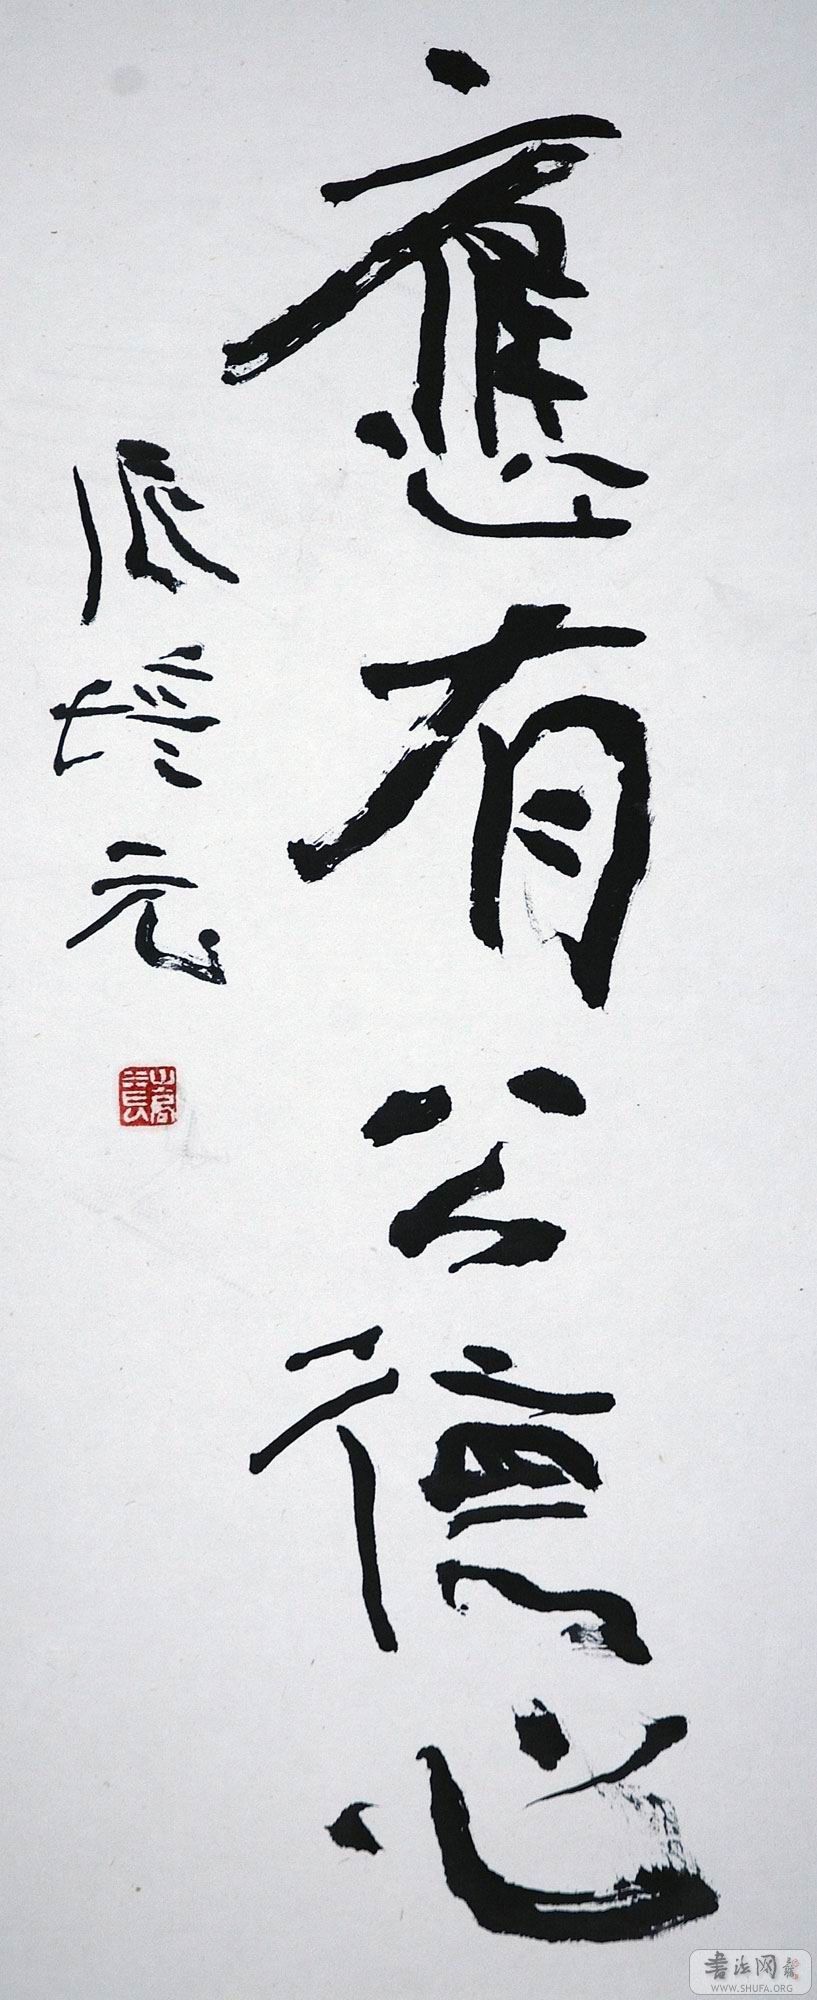 應有公德心
元
書法网
WWW.SHUFA.ORG